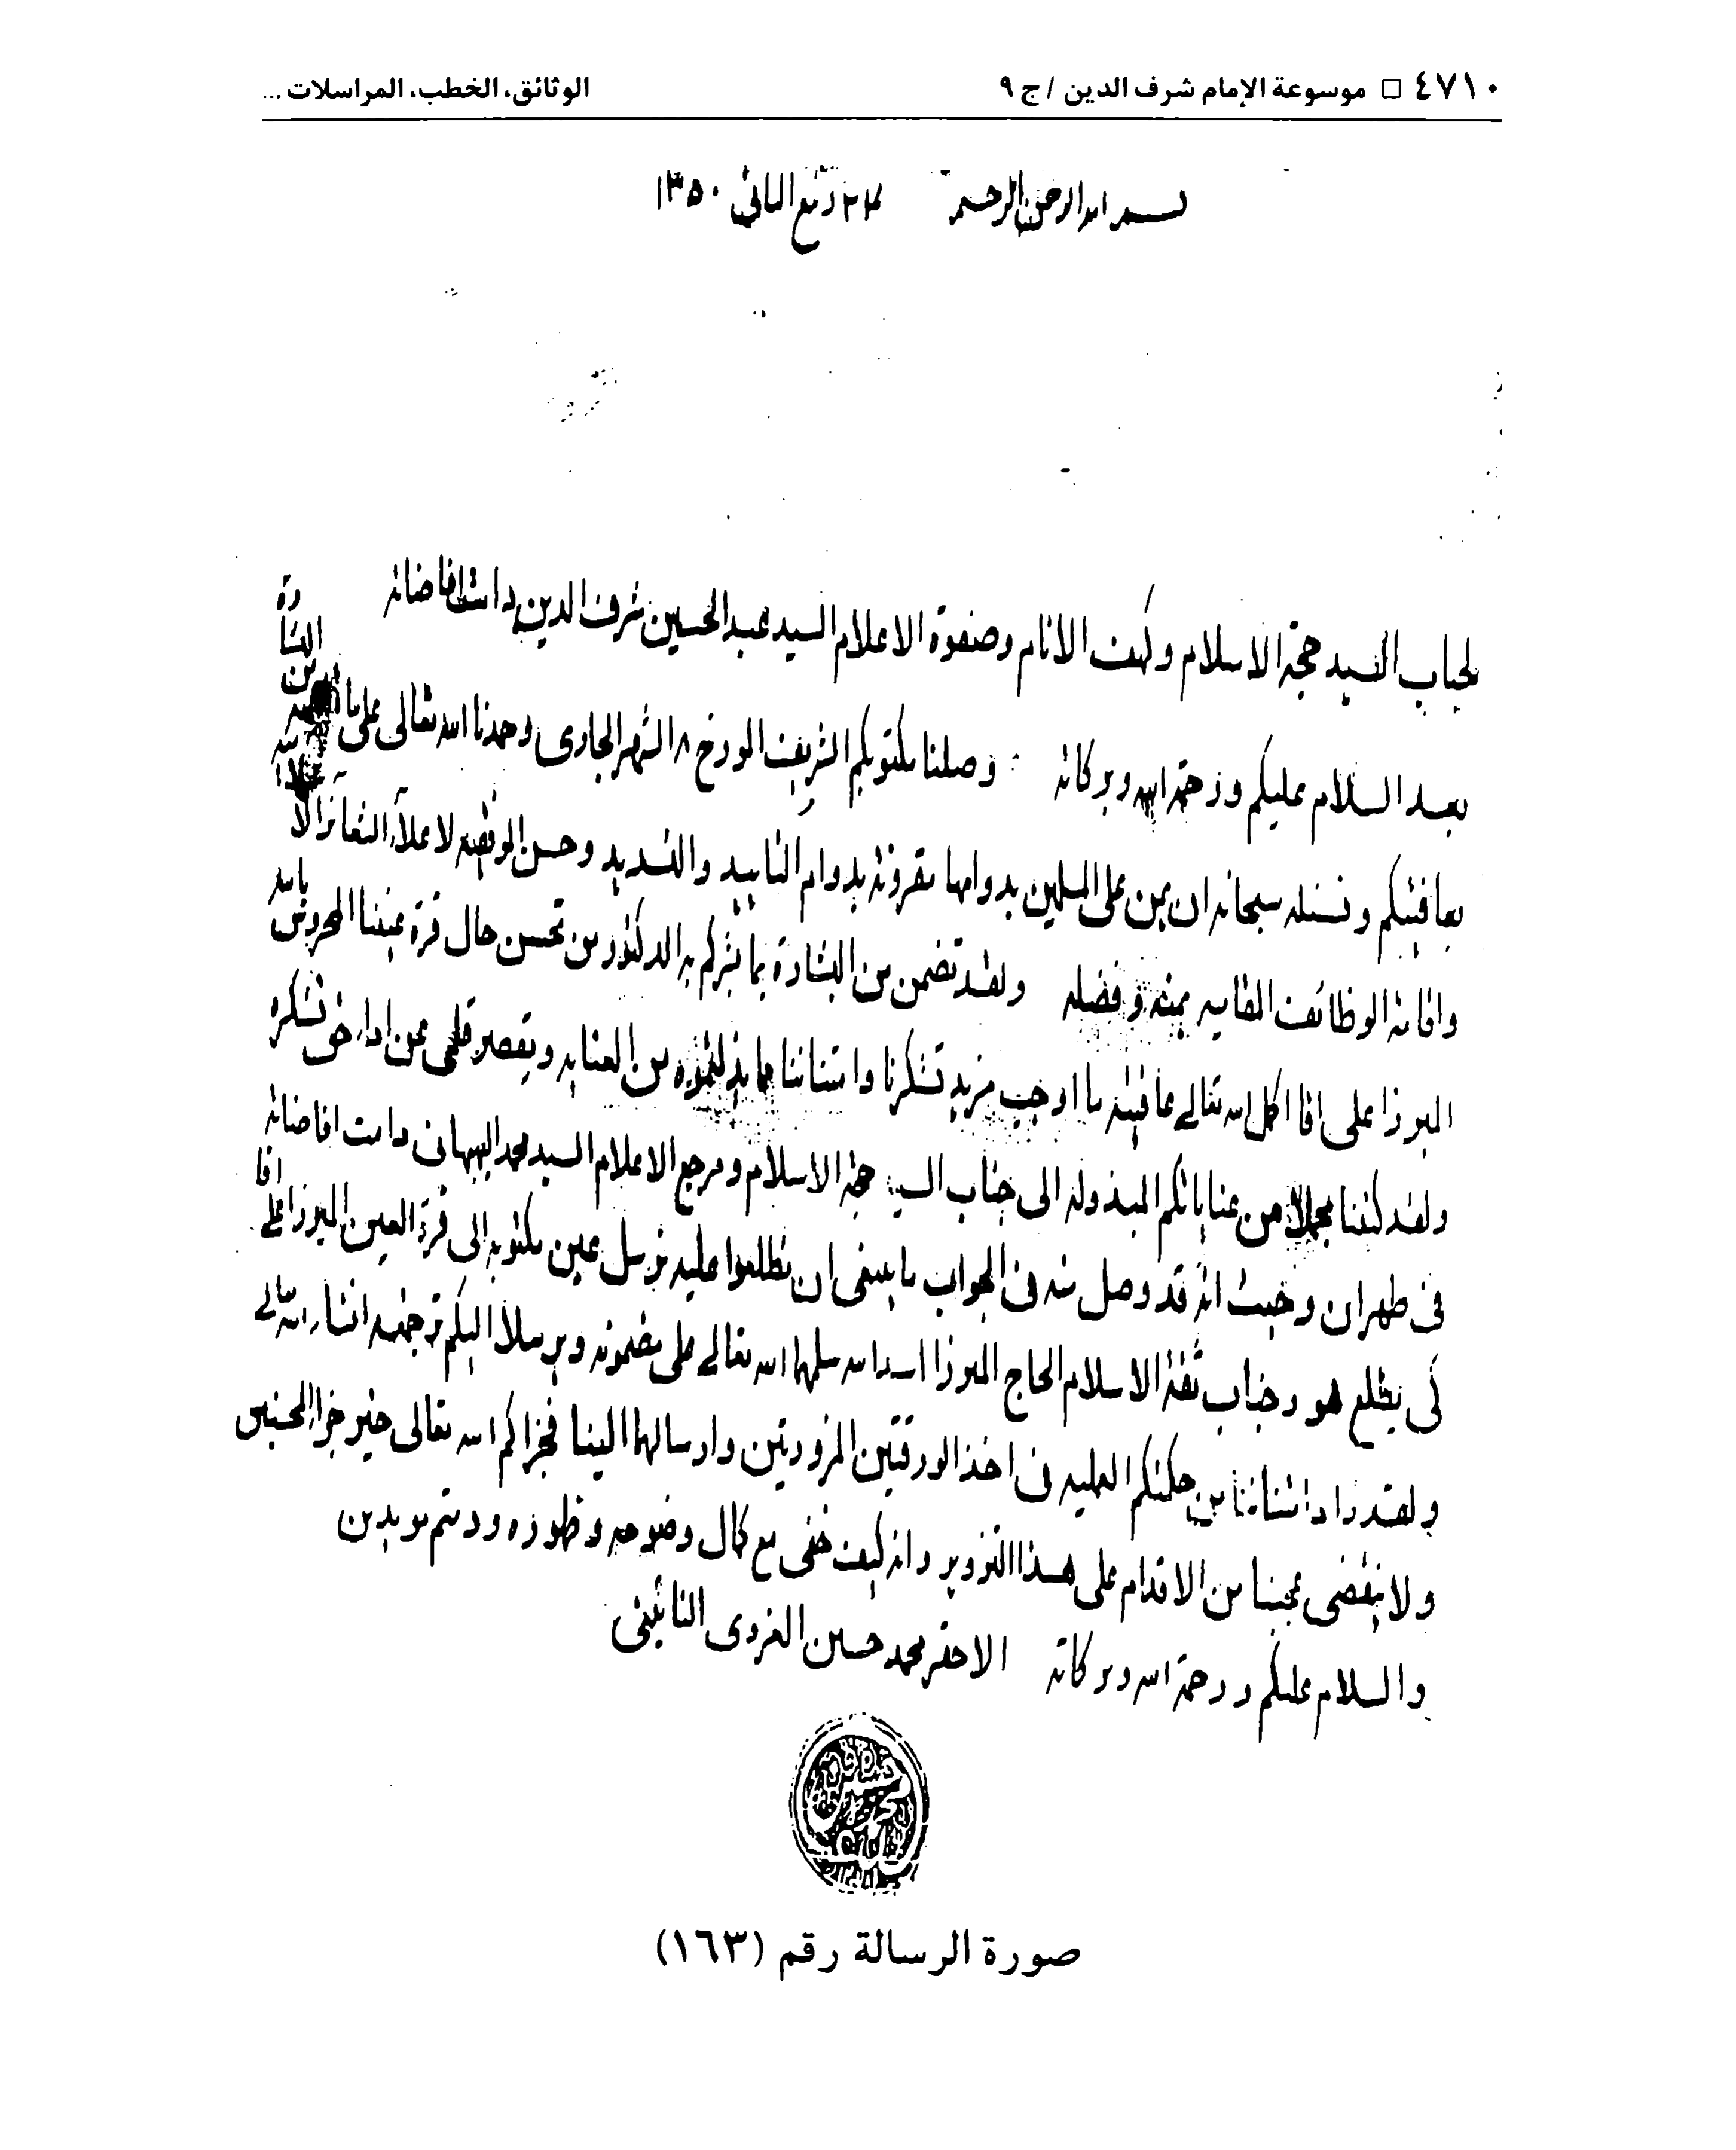 ٤٧١٠ □ موسوعة الإمام شرف الدين / ج ٩ الوثائق، الخطب، المراسلات ...
بسم الله الرحمن الرحيم ربيع الثاني ١٣٥٠
لجناب السيد حجة الاسلام وكهف الانام وصفوة الاعلام السيد عبد الحسين شرف الدين دامت افاضاته
بعد السلام عليكم ورحمة الله وبركاته وصلنا مكتوبكم الشريف المورخ ٨ الشهر الجارى وحمدنا الله تعالى على ما
بعافيتكم ونسئله سبحانه ان يمن على المسلمين بدوامها مقرونة بدوام التأييد والتسديد وحسن التوفيق لاعلاء
واقامة الوظائف بمنه وفضله ولقد تضمن من البشارة بما بشركم به الدكتور من تحسن حال قرة عيننا المحروس بالله
الميرزا على اقا اكمل الله تعالى عافيته ما اوجب مزيد تشكرنا وامتناننا من العناية ويقصر قلمى عن اداء حق تشكره
ولقد كتبنا مجملا من عناياتكم المبذولة الى جناب السيد حجة الاسلام ومرجع الاعلام السيد محمد البهبهانى دامت افاضاته
فى طهران وحيث انه قد وصل منه فى الجواب ما ينبغى ان تطلعوا عليه نرسل عين مكتوبه الى قرة العين الميرزا على اقا
لكى يطلع هو وجناب ثقة الاسلام الحاج الميرزا اسد الله سلمهما الله تعالى على مضمونه ويرسلا اليكم ترجمته انشاء الله تعالى
ولقد زاد امتناننا من حكمتكم العملية فى اخذ الورقتين المزورتين وارسالهما الينا فجزاكم الله تعالى خير جزاء المحسنين
ولا ينقضى عجبنا من الاقدام على هذا التزوير وانه كيف خفى مع كمال وضوحه وظهوره ودمتم مويدين
والسلام عليكم ورحمة الله وبركاته الاحقر محمد حسين الغروى النائينى
صورة الرسالة رقم (١٦٣)